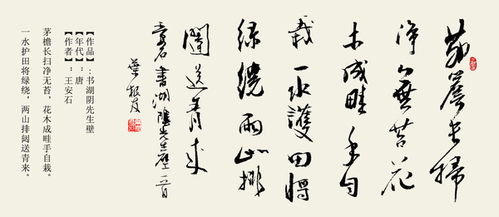 茅簷長掃
净無苔花
木成畦手自
栽一水護田將
绿繞兩山排
闥送青来
書湖陰先生壁一首
【作品】：书湖阴先生壁
【年代】：唐
【作者】：王安石
茅檐长扫净无苔，花木成畦手自栽。
一水护田将绿绕，两山排闼送青来。